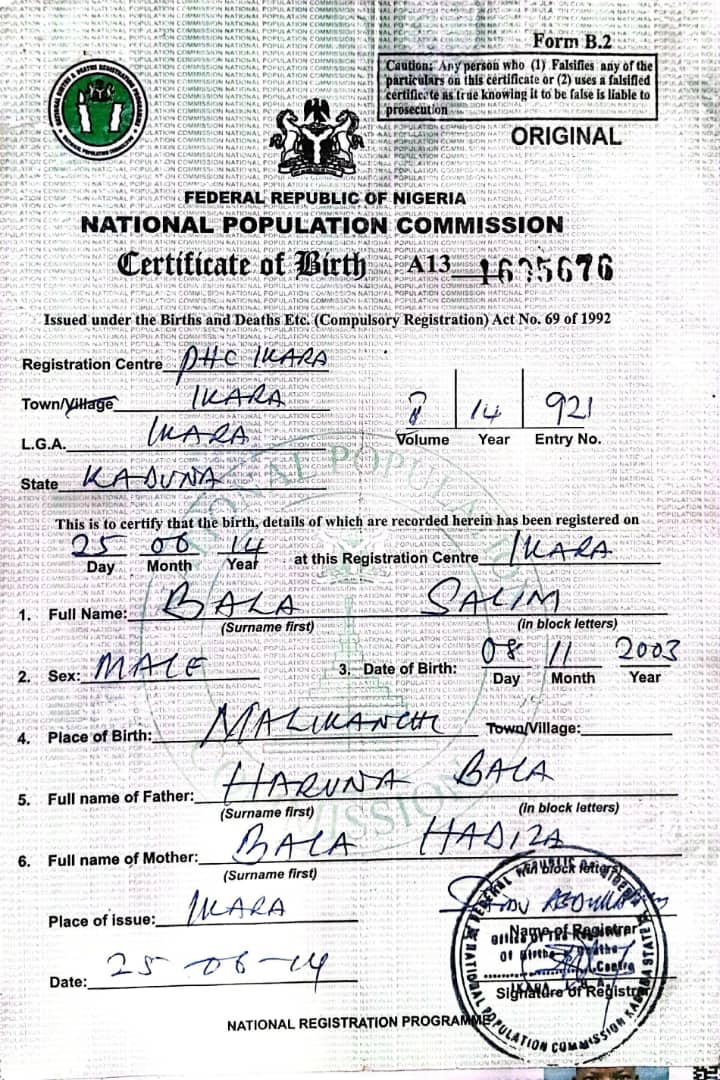 Form B.2
Caution: Any person who (1) Falsifies any of the
particulars on this certificate or (2) uses a falsified
certificate as true knowing it to be false is liable to
prosecution
ORIGINAL
FEDERAL REPUBLIC OF NIGERIA
NATIONAL POPULATION COMMISSION
Certificate of Birth A13
Issued under the Births and Deaths Etc. (Compulsory Registration) Act No. 69 of 1992
Registration Centre PHC IKARA
Town/Village IKARA
L.G.A. IKARA
14 921
Volume Year Entry No.
State KADUNA
This is to certify that the birth, details of which are recorded herein has been registered on
25 06 14 at this Registration Centre IKARA
Day Month Year
1. Full Name: BALA SALIM
(Surname first) (in block letters)
2. Sex: MALE 3. Date of Birth: 08 11 2003
Day Month Year
4. Place of Birth: MALIKANCHI Town/Village:
5. Full name of Father: HARUNA BALA
(Surname first) (in block letters)
6. Full name of Mother: BALA HADIZA
(Surname first) (in block letters)
Place of issue: IKARA
Name of Registrar
Date: 25-06-14
Signature of Registrar
NATIONAL REGISTRATION PROGRAMME
NATIONAL POPULATION COMMISSION KADUNA STATE